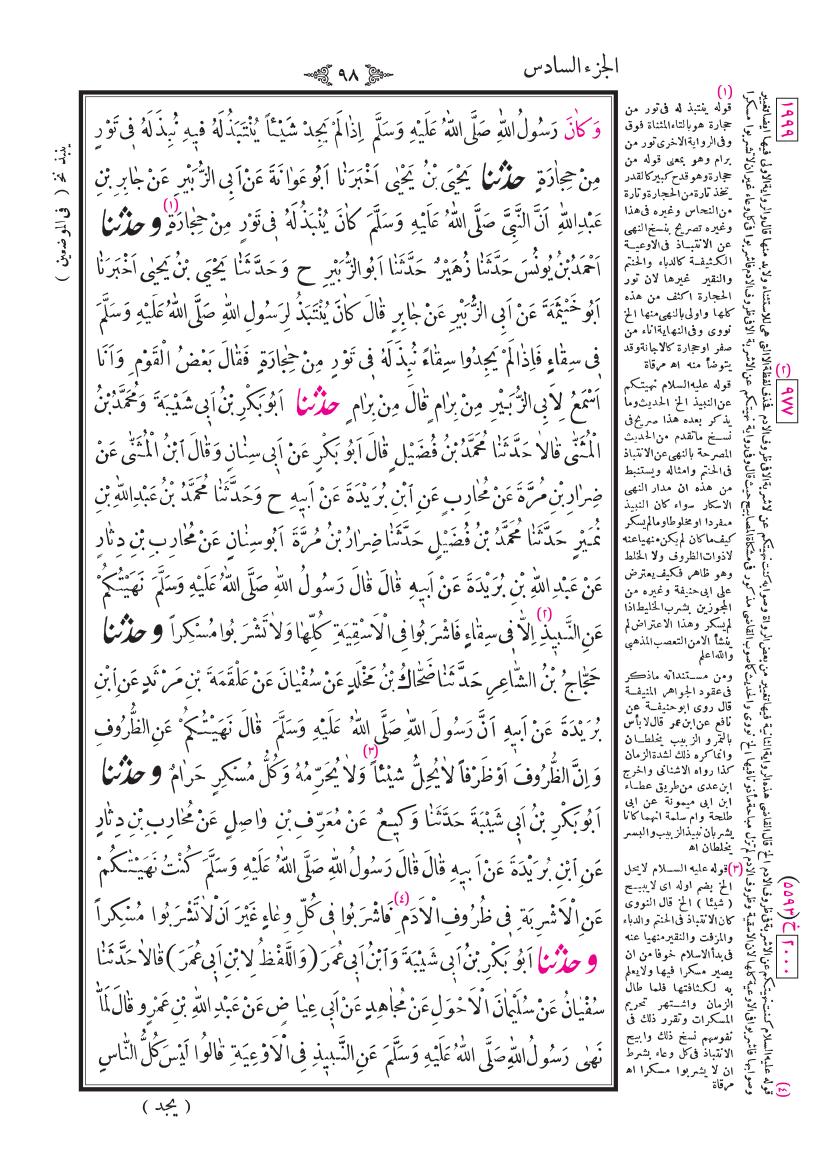 الجزء السادس
٩٨
وَكَانَ رَسُولُ اللهِ صَلَّى اللهُ عَلَيْهِ وَسَلَّمَ إِذَا لَمْ يَجِدْ شَيْئًا يُنْتَبَذُ لَهُ فِيهِ نُبِذَ لَهُ فِى تَوْرٍ
مِنْ حِجَارَةٍ حَدَّثَنَا يَحْيَى بْنُ يَحْيَى أَخْبَرَنَا أَبُو عَوَانَةَ عَنْ أَبِى الزُّبَيْرِ عَنْ جَابِرِ بْنِ
عَبْدِاللهِ أَنَّ النَّبِىَّ صَلَّى اللهُ عَلَيْهِ وَسَلَّمَ كَانَ يُنْبَذُ لَهُ فِى تَوْرٍ مِنْ حِجَارَةٍ (١) وَحَدَّثَنَا
أَحْمَدُ بْنُ يُونُسَ حَدَّثَنَا زُهَيْرٌ حَدَّثَنَا أَبُو الزُّبَيْرِ ح وَحَدَّثَنَا يَحْيَى بْنُ يَحْيَى أَخْبَرَنَا
أَبُو خَيْثَمَةَ عَنْ أَبِى الزُّبَيْرِ عَنْ جَابِرٍ قَالَ كَانَ يُنْتَبَذُ لِرَسُولِ اللهِ صَلَّى اللهُ عَلَيْهِ وَسَلَّمَ
فِى سِقَاءٍ فَإِذَا لَمْ يَجِدُوا سِقَاءً نُبِذَ لَهُ فِى تَوْرٍ مِنْ حِجَارَةٍ فَقَالَ بَعْضُ الْقَوْمِ وَأَنَا
أَسْمَعُ لِأَبِى الزُّبَيْرِ مِنْ بِرَامٍ قَالَ مِنْ بِرَامٍ حَدَّثَنَا أَبُو بَكْرِ بْنُ أَبِى شَيْبَةَ وَمُحَمَّدُ بْنُ
الْمُثَنَّى قَالَا حَدَّثَنَا مُحَمَّدُ بْنُ فُضَيْلٍ قَالَ أَبُو بَكْرٍ عَنْ أَبِى سِنَانٍ وَقَالَ ابْنُ الْمُثَنَّى عَنْ
ضِرَارِ بْنِ مُرَّةَ عَنْ مُحَارِبٍ عَنِ ابْنِ بُرَيْدَةَ عَنْ أَبِيهِ ح وَحَدَّثَنَا مُحَمَّدُ بْنُ عَبْدِاللهِ بْنِ
نُمَيْرٍ حَدَّثَنَا مُحَمَّدُ بْنُ فُضَيْلٍ حَدَّثَنَا ضِرَارُ بْنُ مُرَّةَ أَبُو سِنَانٍ عَنْ مُحَارِبِ بْنِ دِثَارٍ
عَنْ عَبْدِاللهِ بْنِ بُرَيْدَةَ عَنْ أَبِيهِ قَالَ قَالَ رَسُولُ اللهِ صَلَّى اللهُ عَلَيْهِ وَسَلَّمَ نَهَيْتُكُمْ
عَنِ النَّبِيذِ إِلَّا فِى سِقَاءٍ فَاشْرَبُوا فِى الْأَسْقِيَةِ كُلِّهَا وَلَا تَشْرَبُوا مُسْكِرًا (٢) وَحَدَّثَنَا
حَجَّاجُ بْنُ الشَّاعِرِ حَدَّثَنَا ضَحَّاكُ بْنُ مَخْلَدٍ عَنْ سُفْيَانَ عَنْ عَلْقَمَةَ بْنِ مَرْثَدٍ عَنِ ابْنِ
بُرَيْدَةَ عَنْ أَبِيهِ أَنَّ رَسُولَ اللهِ صَلَّى اللهُ عَلَيْهِ وَسَلَّمَ قَالَ نَهَيْتُكُمْ عَنِ الظُّرُوفِ
وَإِنَّ الظُّرُوفَ أَوْ ظَرْفًا لَا يُحِلُّ شَيْئًا (٣) وَلَا يُحَرِّمُهُ وَكُلُّ مُسْكِرٍ حَرَامٌ وَحَدَّثَنَا
أَبُو بَكْرِ بْنُ أَبِى شَيْبَةَ حَدَّثَنَا وَكِيعٌ عَنْ مُعَرِّفِ بْنِ وَاصِلٍ عَنْ مُحَارِبِ بْنِ دِثَارٍ
عَنِ ابْنِ بُرَيْدَةَ عَنْ أَبِيهِ قَالَ قَالَ رَسُولُ اللهِ صَلَّى اللهُ عَلَيْهِ وَسَلَّمَ كُنْتُ نَهَيْتُكُمْ
عَنِ الْأَشْرِبَةِ فِى ظُرُوفِ الْأَدَمِ (٤) فَاشْرَبُوا فِى كُلِّ وِعَاءٍ غَيْرَ أَنْ لَا تَشْرَبُوا مُسْكِرًا
وَحَدَّثَنَا أَبُو بَكْرِ بْنُ أَبِى شَيْبَةَ وَابْنُ أَبِى عُمَرَ (وَاللَّفْظُ لِابْنِ أَبِى عُمَرَ) قَالَا حَدَّثَنَا
سُفْيَانُ عَنْ سُلَيْمَانَ الْأَحْوَلِ عَنْ مُجَاهِدٍ عَنْ أَبِى عِيَاضٍ عَنْ عَبْدِاللهِ بْنِ عَمْرٍو قَالَ لَمَّا
نَهَى رَسُولُ اللهِ صَلَّى اللهُ عَلَيْهِ وَسَلَّمَ عَنِ النَّبِيذِ فِى الْأَوْعِيَةِ قَالُوا لَيْسَ كُلُّ النَّاسِ
( يجد )
(١)
قوله ينتبذ له فى تور من
حجارة هو بالتاء المثناة فوق
وفى الرواية الاخرى تور من
برام وهو بمعنى قوله من
حجارة وهو قدح كبير كالقدر
يتخذ تارة من الحجارة وتارة
من النحاس وغيره فى هذا
وغيره تصريح بنسخ النهى
عن الانتباذ فى الاوعية
الكثيفة كالدباء والحنتم
والنقير غيرها لان تور
الحجارة اكثف من هذه
كلها واولى بالنهى منها الخ
نووى وفى النهاية اناء من
صفر او حجارة كالاجانة وقد
يتوضأ منه اه مرقاة
(٢)
قوله عليه السلام نهيتكم
عن النبيذ الخ الحديث وما
يذكر بعده هذا صريح فى
نسخ ما تقدم من الحديث
المصرحة بالنهى عن الانتباذ
فى الحنتم وامثاله ويستنبط
من هذه ان مدار النهى
الاسكار سواء كان النبيذ
مفردا او مخلوطا وما لم يسكر
كيف ما كان لم يكن منهيا عنه
لا ذوات الظروف ولا الخلط
وهو ظاهر فكيف يعترض
على ابى حنيفة وغيره من
المجوزين بشرب الخليط اذا
لم يسكر وهذا الاعتراض لم
ينشأ الا من التعصب المذهبى
والله اعلم
ومن مستنداته ما ذكر
فى عقود الجواهر المنيفة
قال روى ابو حنيفة عن
نافع عن ابن عمر قال لا بأس
بالتمر والزبيب يخلطان
وانما كره ذلك لشدة الزمان
كذا رواه الاشنانى واخرج
ابن عدى من طريق عطاء
ابن ابى ميمونة عن ابى
طلحة وام سلمة انهما كانا
يشربان نبيذ الزبيب والبسر
يخلطان اه
(٣) قوله عليه السلام لا يحل
الخ بضم اوله اى لا يبيح
( شيئا ) الخ قال النووى
كان الانتباذ فى الحنتم والدباء
والمزفت والنقير منهيا عنه
فى بدأ الاسلام خوفا من ان
يصير مسكرا فيها ولا يعلم
به لكثافتها فلما طال
الزمان واشتهر تحريم
المسكرات وتقرر ذلك فى
نفوسهم نسخ ذلك وابيح
الانتباذ فى كل وعاء بشرط
ان لا يشربوا مسكرا اه
مرقاة
(٤)
١٩٩٩
٩٧٧
٢٠٠٠
خ (٥٥٩٣)